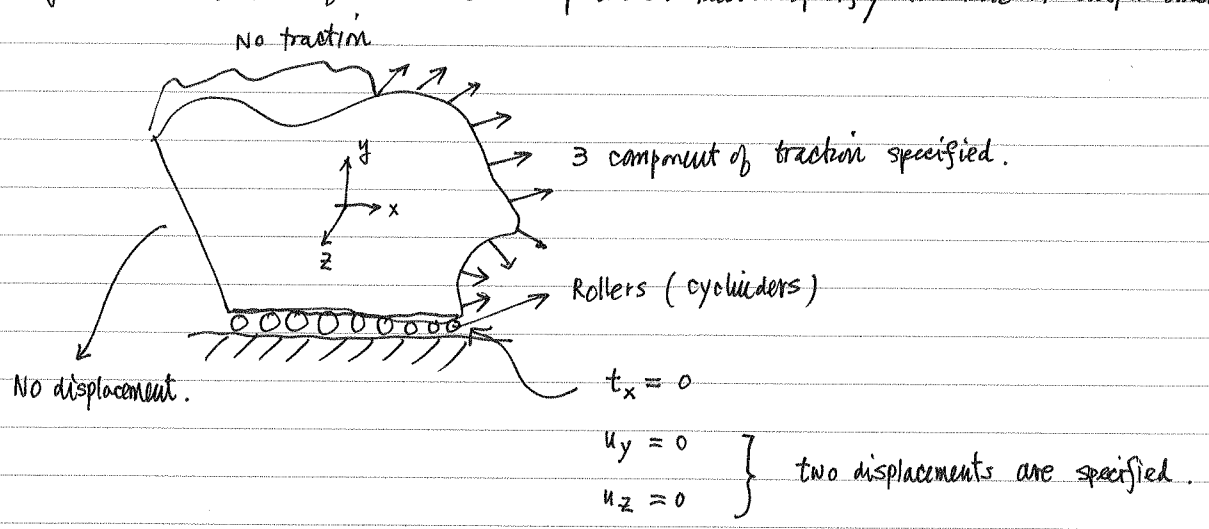 No traction
y
x
z
3 component of traction specified.
Rollers (cyclinders)
No displacement.
t_x = 0
u_y = 0
u_z = 0
two displacements are specified.